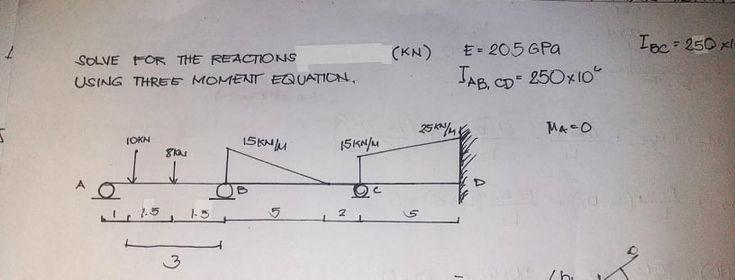 SOLVE FOR THE REACTIONS (KN) E = 205 GPa
USING THREE MOMENT EQUATION.
I AB, CD = 250x10⁶
I BC = 250 x1
MA = 0
10KN
8KN
15KN/M
15KN/M
25KN/M
A
B
C
D
1 1.5 1.5 5 2 5
3